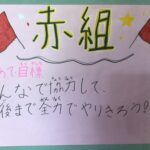 赤組
んなで協力して、
後まで全力でやりきろう!